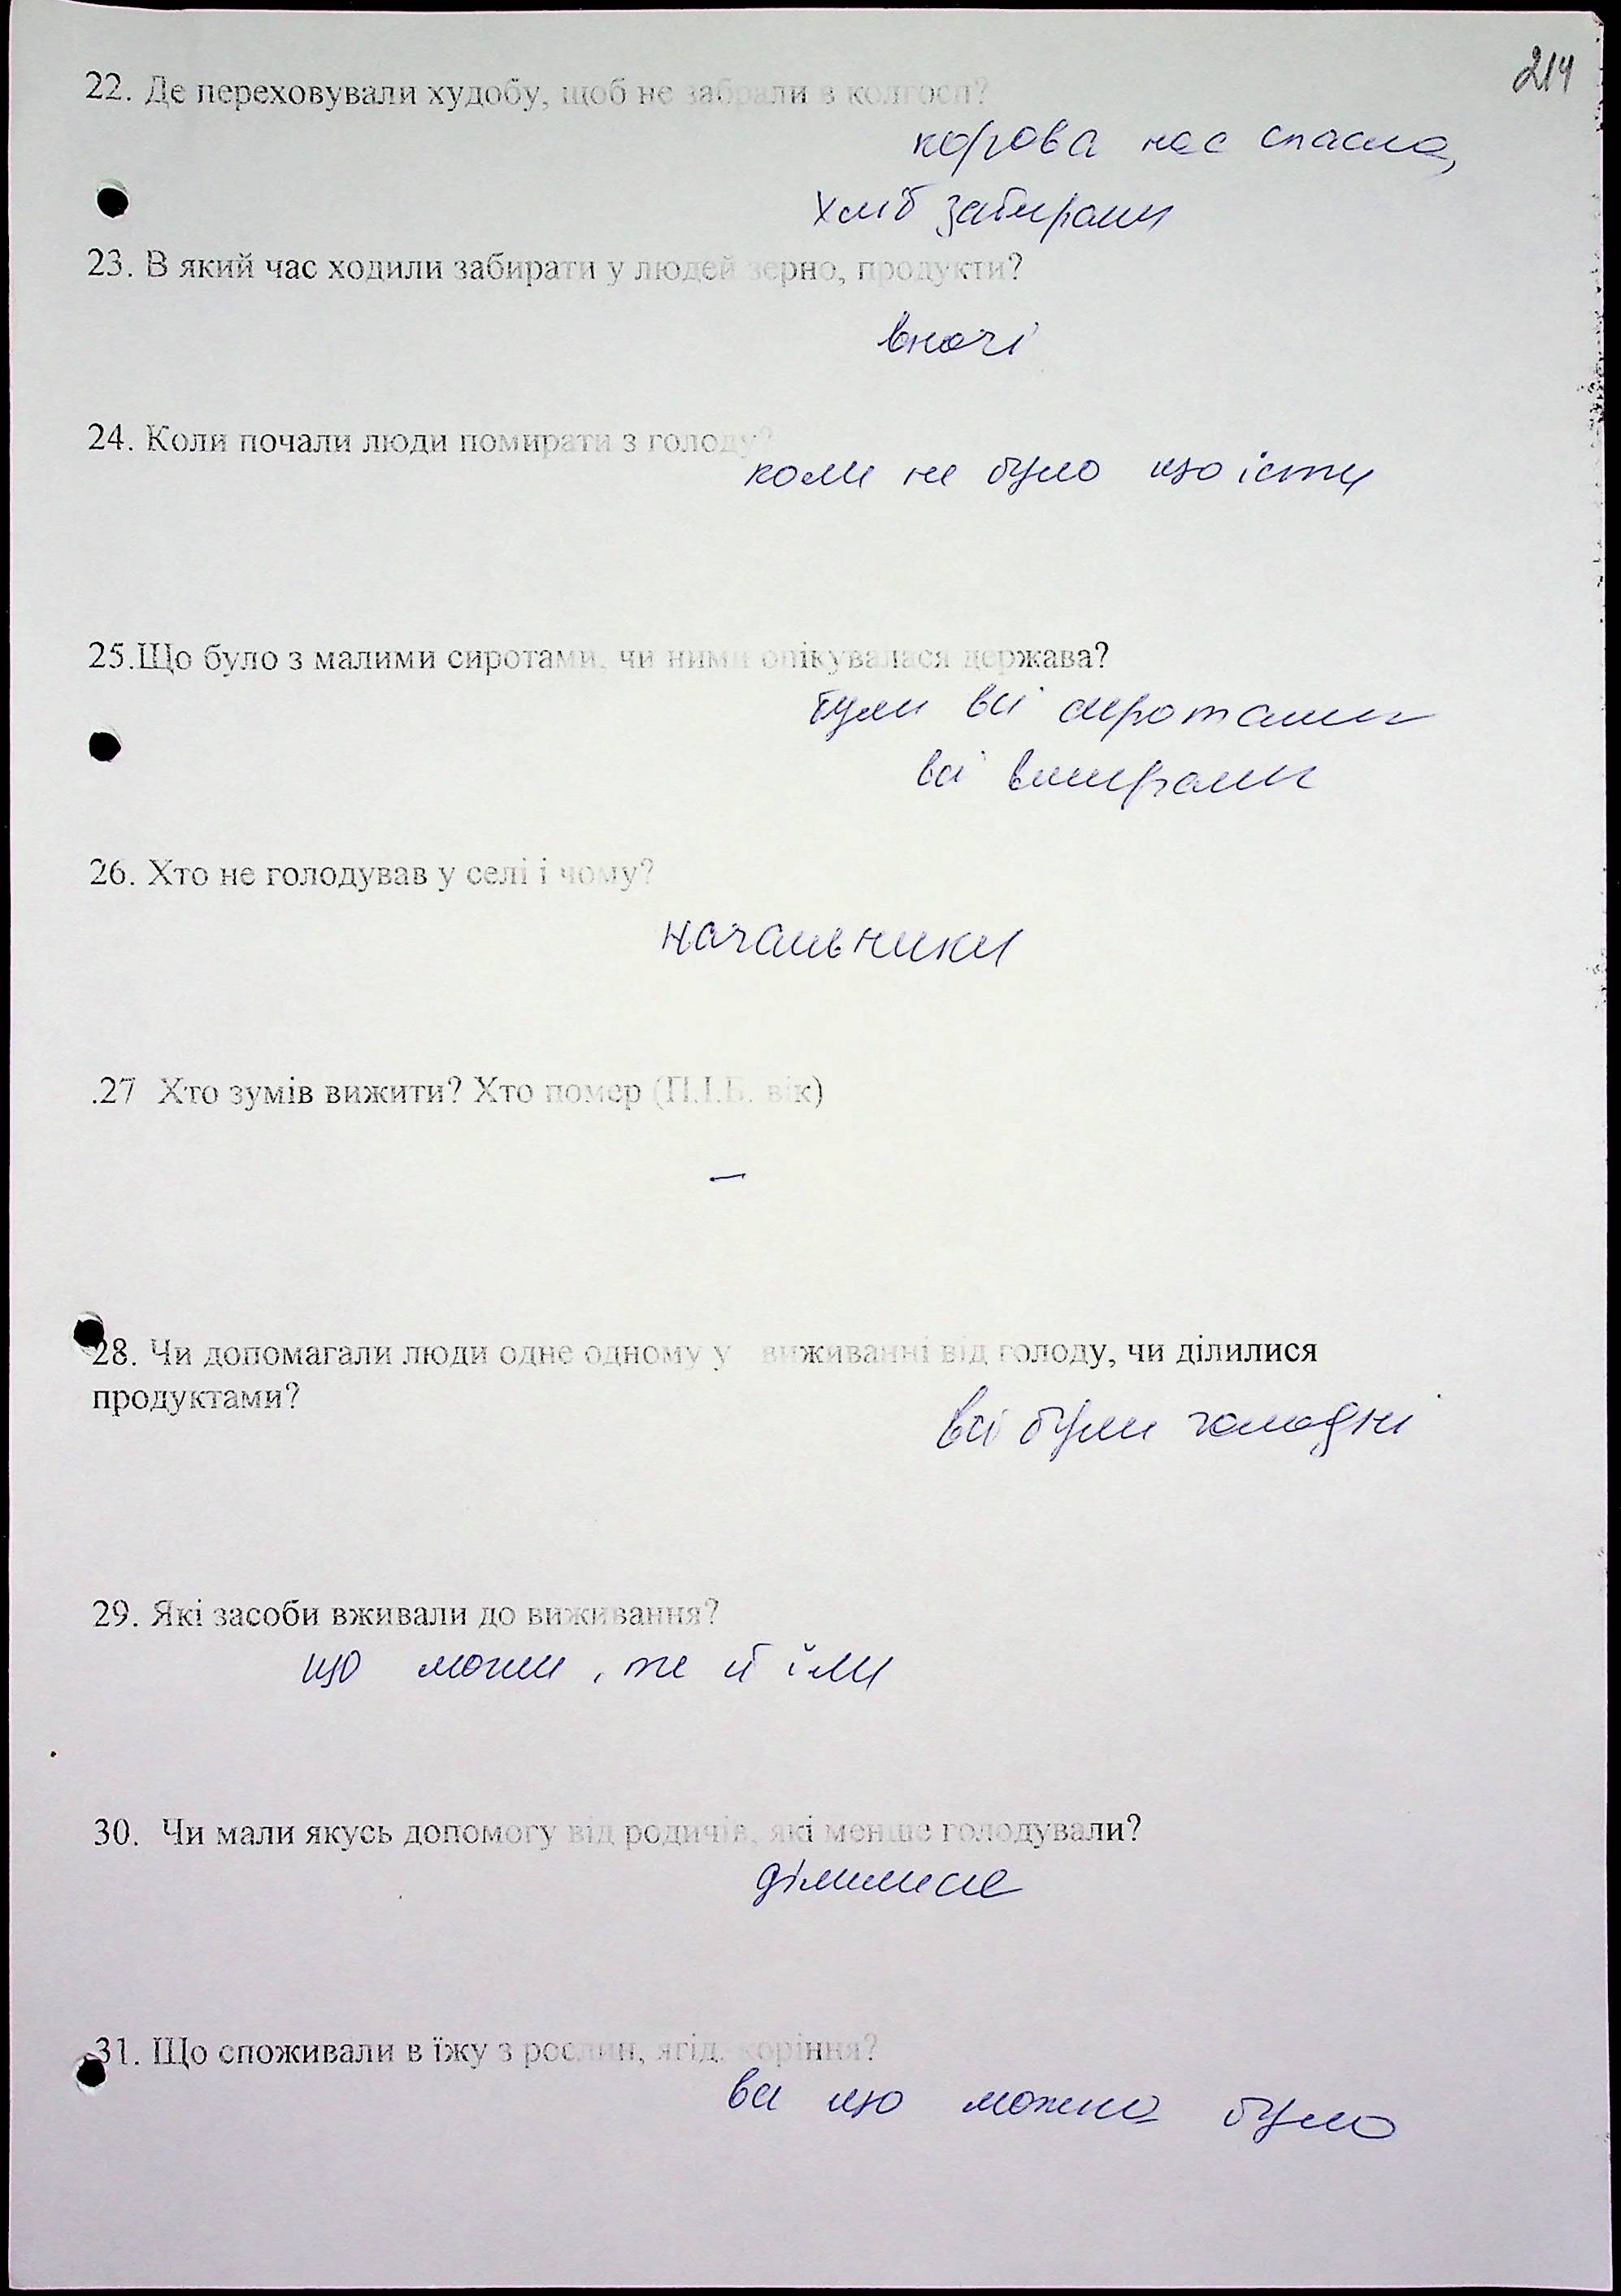 214
22. Де переховували худобу, щоб не забрали в колгосп?
корова нас спасла,
хліб забирали
23. В який час ходили забирати у людей зерно, продукти?
вночі
24. Коли почали люди помирати з голоду?
коли не було що їсти
25.Що було з малими сиротами, чи ними опікувалася держава?
були всі сиротами
всі вмирали
26. Хто не голодував у селі і чому?
начальники
.27 Хто зумів вижити? Хто помер (П.І.Б. вік)
–
28. Чи допомагали люди одне одному у виживанні від голоду, чи ділилися
продуктами?
всі були голодні
29. Які засоби вживали до виживання?
що могли, те й їли
30. Чи мали якусь допомогу від родичів, які менше голодували?
ділилися
31. Що споживали в їжу з рослин, ягід, коріння?
все що можна було